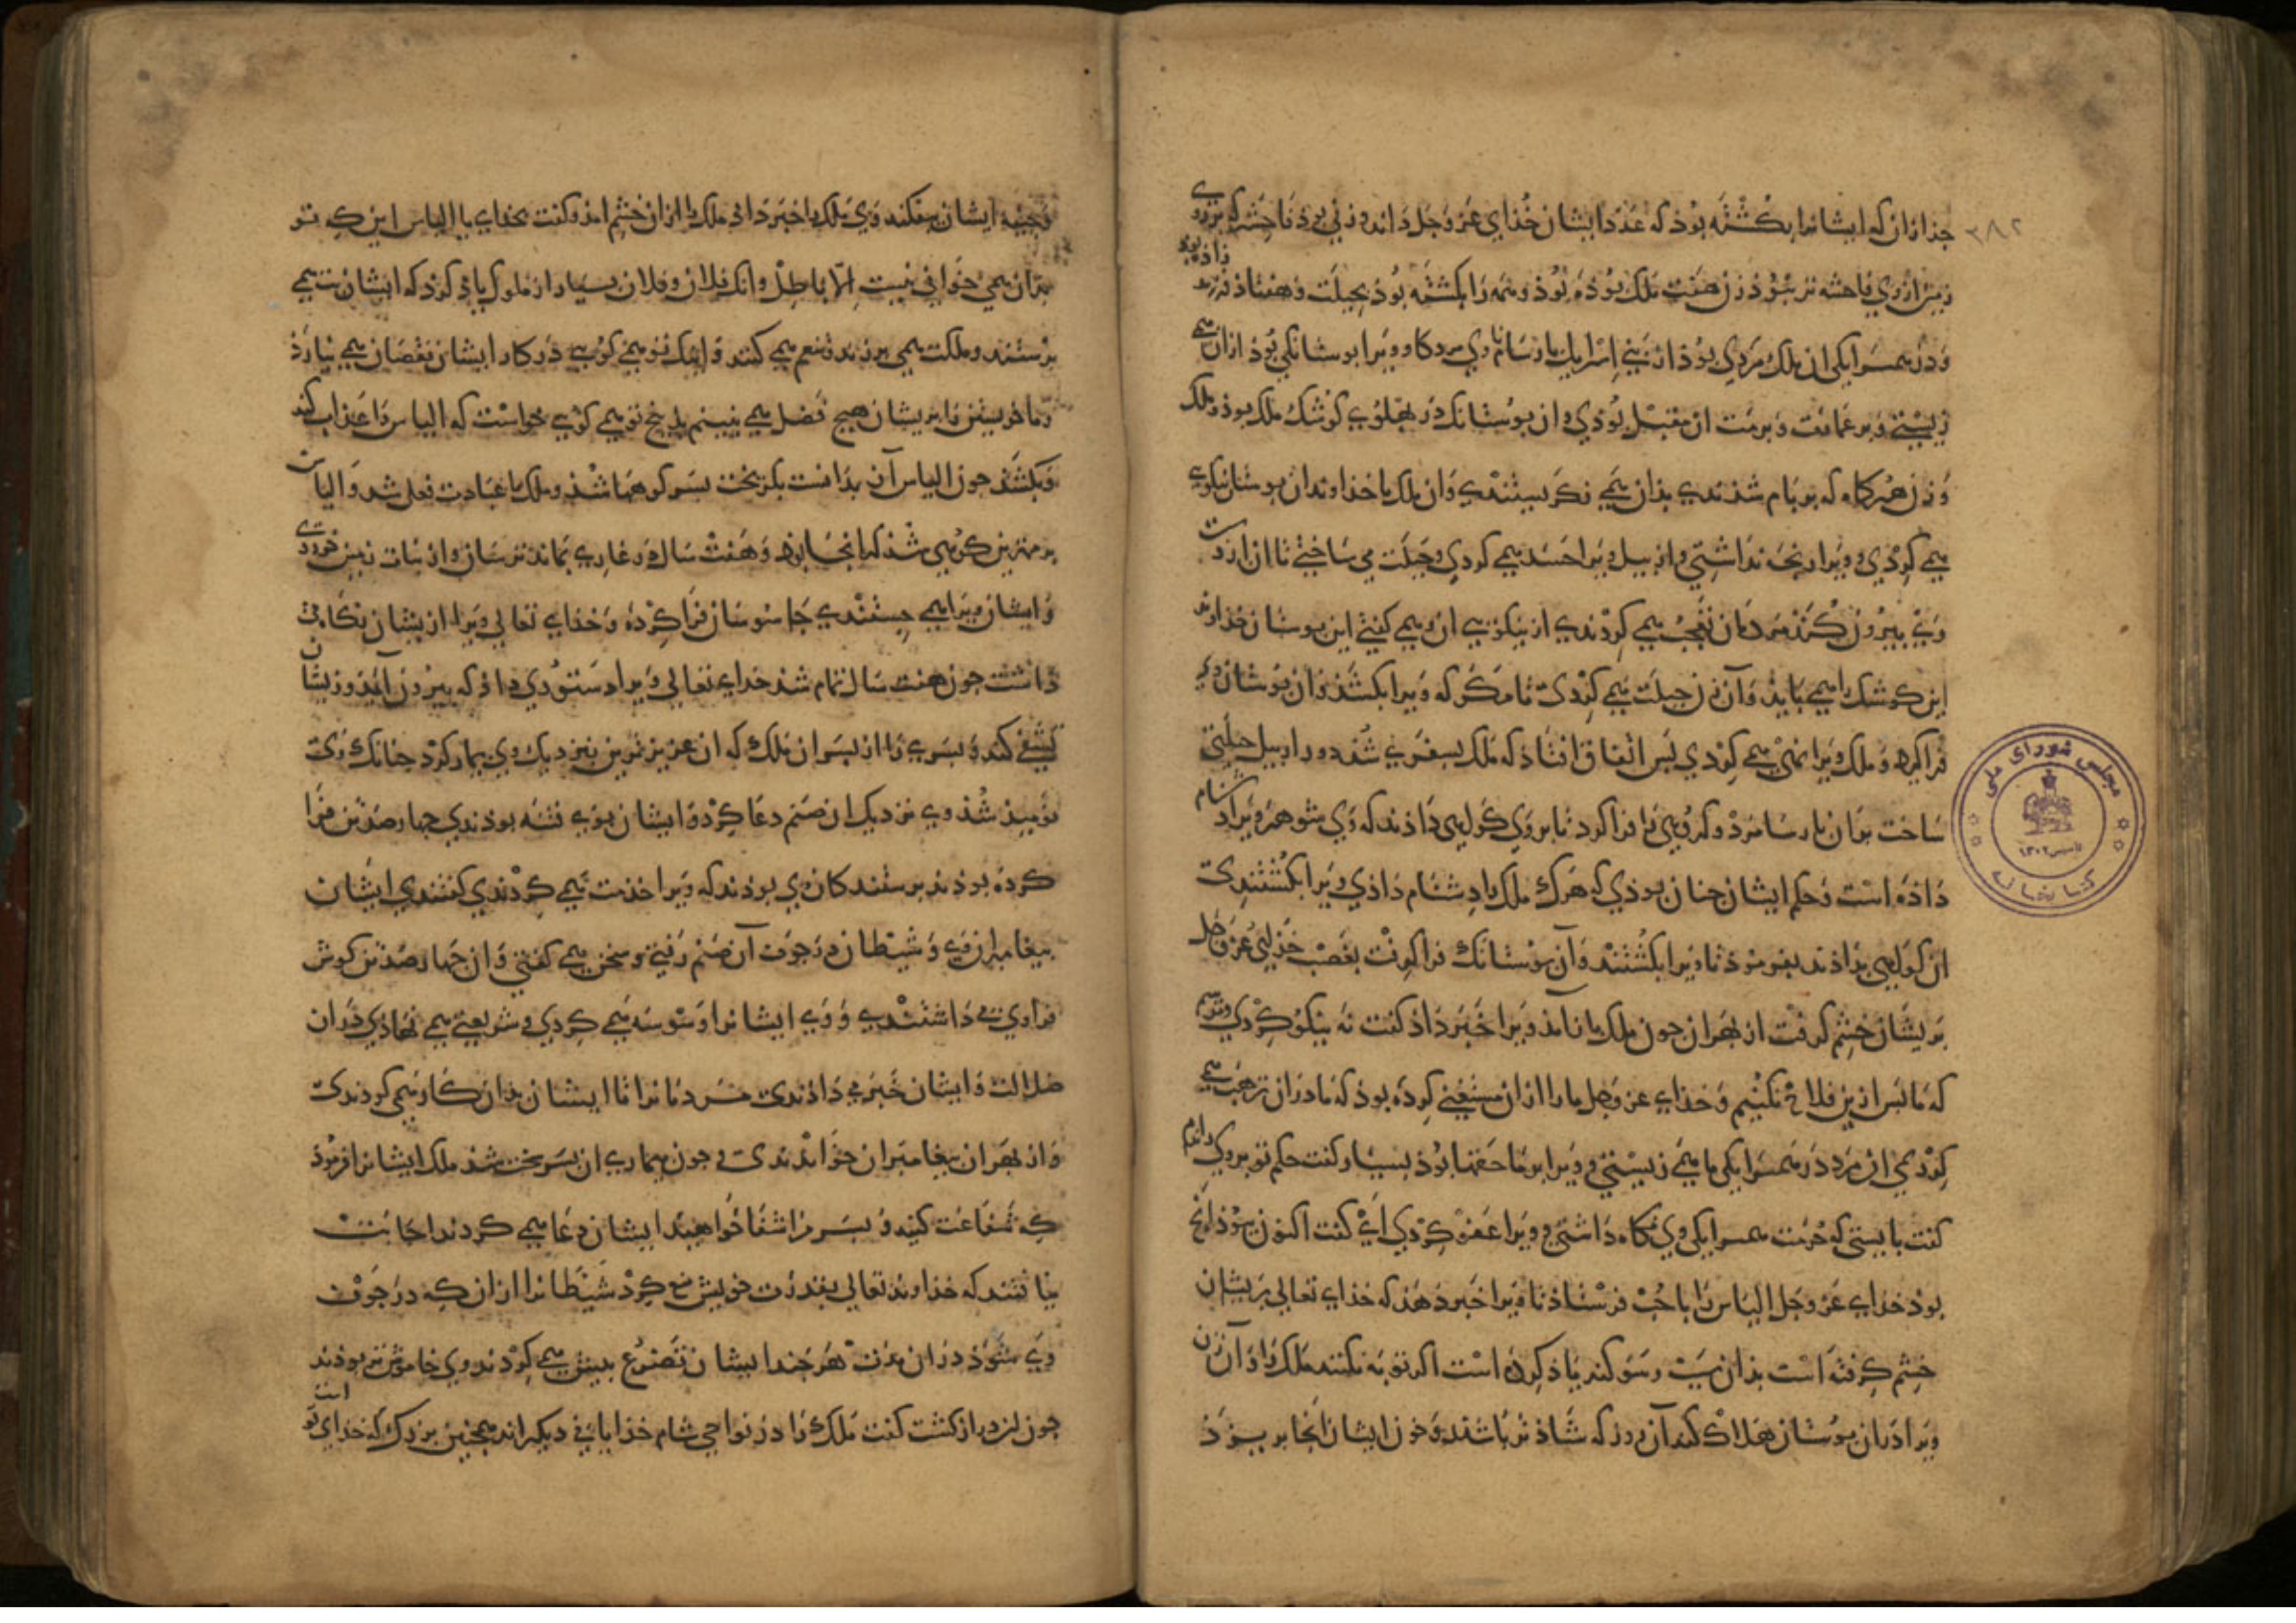 ۳۸۲
جذ ازان که ایشانرا بکشته بوذ که عدد ایشان خذای عز و جل داند و زنی بوذ فاحشه که بر روی
زمین از وی فاحشه تر نبوذ زن هفت ملک بوذه بوذ و همه را بکشته بوذ بحیلت و هفتاذ فرزند
زاذه بوذ
و در همسرایکی ان ملک مردی بوذ از بنی اسرایل پارسا نام وی مردکا و ویرا بوستانکی بوذ ازان می
زیستی و بر عمارت و مرمت ان مقبل بوذی و ان بوستانک در بهلوی کوشک ملک بوذ و ملک
و زن هرکاه که بر بام شذندی بذان می نکریستندی و ان ملک با خذاوندان بوستان نیکوی
می کرذی و ویرا رنجه نداشتی و ازبیل ویرا حسد می کردی و حیلت می ساختی تا ان از دست
وی بیرون کند مردمان تعجب می کردندی از نیکویی ان و می کفتی این بوستان خذاوند
این کوشک را می بایذ و آن زن حیلت می کردی تا مکر که ویرا بکشد و ان بوستان وی
فرا کیرد و ملک ویرا نهی می کردی بس اتفاق افتاذ که ملک بسفری شذ دور ازبیل حیلتی
ساخت بران بارسا مرد و کروهی را فرا کرد تا بر وی کواهی داذند که وی شوهر ویرا دشنام
داذه است و حکم ایشان چنان بوذی که هرک ملک را دشنام داذی ویرا بکشتندی
ان کواهی بداذند بفرموذ تا ویرا بکشتند و آن بوستانک فرا کرفت بغصب خذای عز و جل
بریشان خشم کرفت از بهر ان چون ملک باز آمذ ویرا خبر داذ کفت نه نیکو کردی و ترسم
که ما بس ازین فلاح نکنیم و خذای عز و جل ما را ازان مستغنی کرده بوذ که ما دران رغبت می
کردیمی ان مرد در همسرایکی ما می زیستی و ویرا بر ما حقها بوذ بسیار کفت حکم تو بر وی راندم
کفت بایستی که حرمت همسرایکی وی نکاه داشتی و ویرا عفو کردی ای کفت اکنون بوذ انچ
بوذ خذای عز و جل الیاس را باحب فرستاذ تا ویرا خبر دهذ که خذای تعالی بریشان
خشم کرفته است بذان سبب و سوکند یاذ کرده است اکر توبه نکنند ملک را و آن زن
ویرا دران بوستان هلاک کند آن روز که شاذتر باشند و خون ایشان انجا بریزذ
و جیفه ایشان بیفکند وی ملک را خبر داذ ملک را ازان خشم امذ و کفت بخذای یا الیاس این که تو
بران می خوانی نیست الا باطل و انک فلان و فلان بسیار از ملوک یاذ کرد که ایشان بت می
برستند و ملکت می برند و تنعم می کنند و اینک تو می کویی در کار ایشان نقصان می نیارذ
و ما خویشتن را بریشان هیچ فضل می نبینم بذینچ تو می کویی خواست که الیاس را عذاب کند
و بکشذ چون الیاس آن بدانست بکریخت بسر کوهها شذ و ملک با عبادت بعل شد و الیاس
بر مهترین کوهی شذ که انجا بوذ و هفت سال در غاری بماند ترسان و از نبات زمین خوردی
و ایشان ویرا می جستندی جاسوسان فرا کرده و خذای تعالی ویرا از یشان نکاه می
داشت چون هفت سال تمام شذ خذای تعالی ویرا دستوری داذ که بیرون آیذ و زیشان
تشفی کند و بسری را از بسران ملک که ان عزیزترین بنزدیک وی بیمار کرد چنانک زوی
نومیذ شذ وی نزدیک ان صنم دعا کرد و ایشان بوی فتنه بوذندی چهارصد تن فرا
کرده بوذند برستندکان وی بوذند که ویرا خذمت می کردندی کفتندی ایشان
بیغامبران وی و شیطان در جوف آن صنم رفتی و سخن می کفتی و ان چهارصد تن کوش
فرا وی می داشتندی و وی ایشانرا وسوسه می کردی و شریعتی می نهاذی دران
ضلالت و ایشان خبر می داذندی مردمانرا تا ایشان بدان کار می کردندی
و از بهر ان بیغامبران خواندندی و چون بیماری ان بسر سخت شذ ملک ایشانرا فرموذ
که شفاعت کنید و بسر مرا شفا خواهید ایشان دعا می کردند اجابت
نیافتند که خذاوند تعالی بقدرت خویش منع کرد شیطانرا ازان که در جوف
وی شوذ دران مدت هر چند ایشان تضرع بیش می کردند وی خاموش تر بوذند
چون لز دراز کشت کفت ملک را در نواحی شام خذایانی دیکر اند همچنین بزرک که خذای تو
است
مجلس شورای ملی
تاسیس ۱۳۰۲
کتابخانه